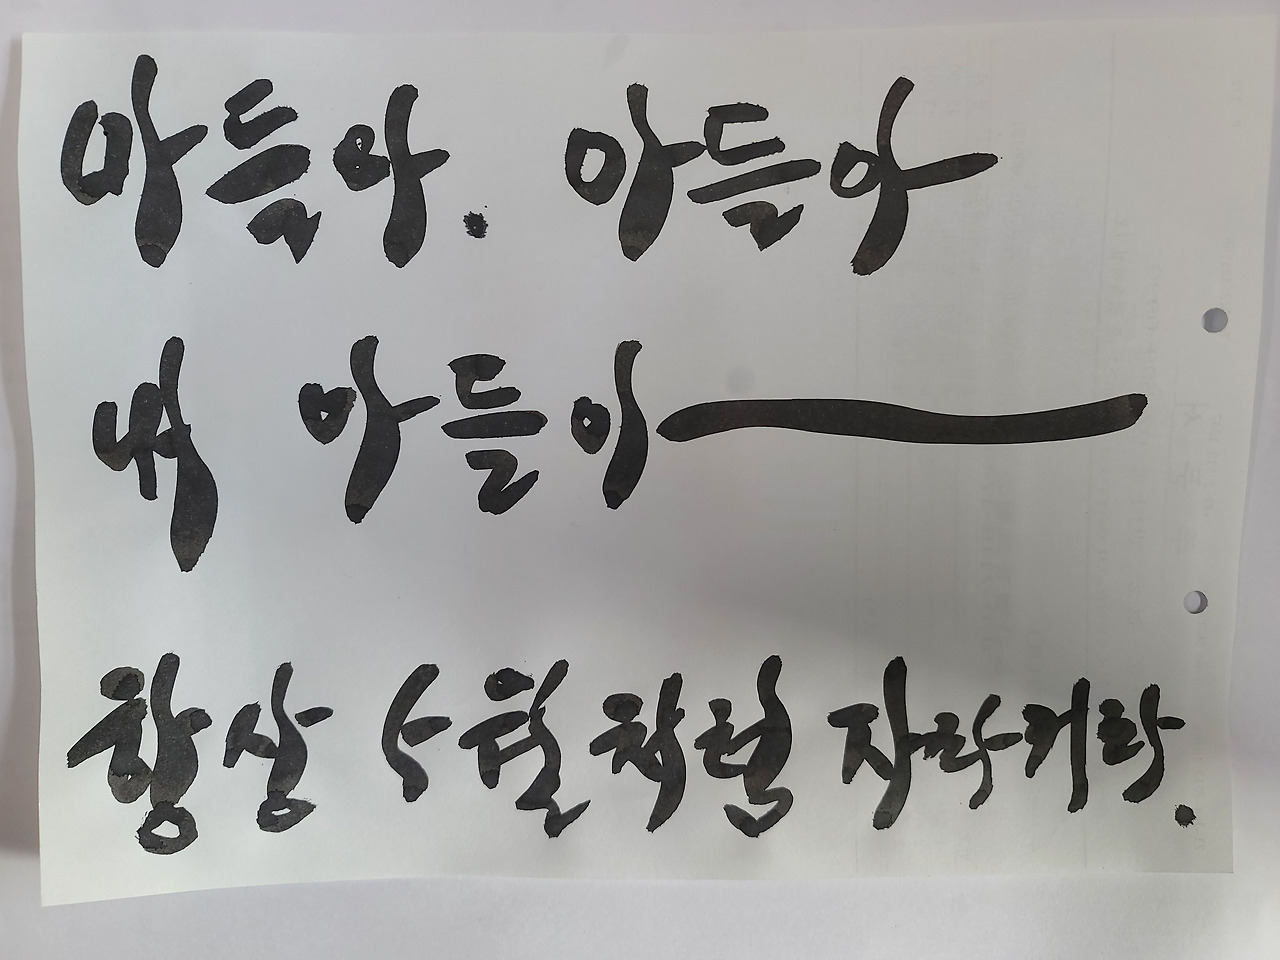 아들아. 아들아
내 아들아
항상 5월처럼 자라거라.